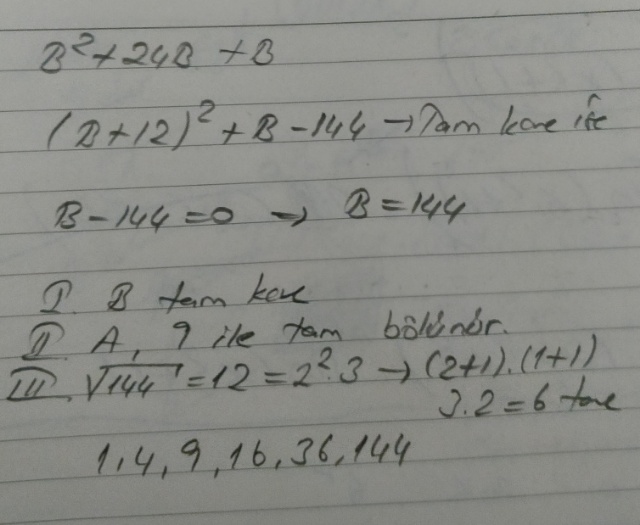 B²+24B+B
(B+12)²+B-144→Tam kare ise
B-144=0 → B=144
I. B tam kare
II. A, 9 ile tam bölünür.
III. √144=12=2².3→(2+1).(1+1)
3.2=6 tane
1,4,9,16,36,144